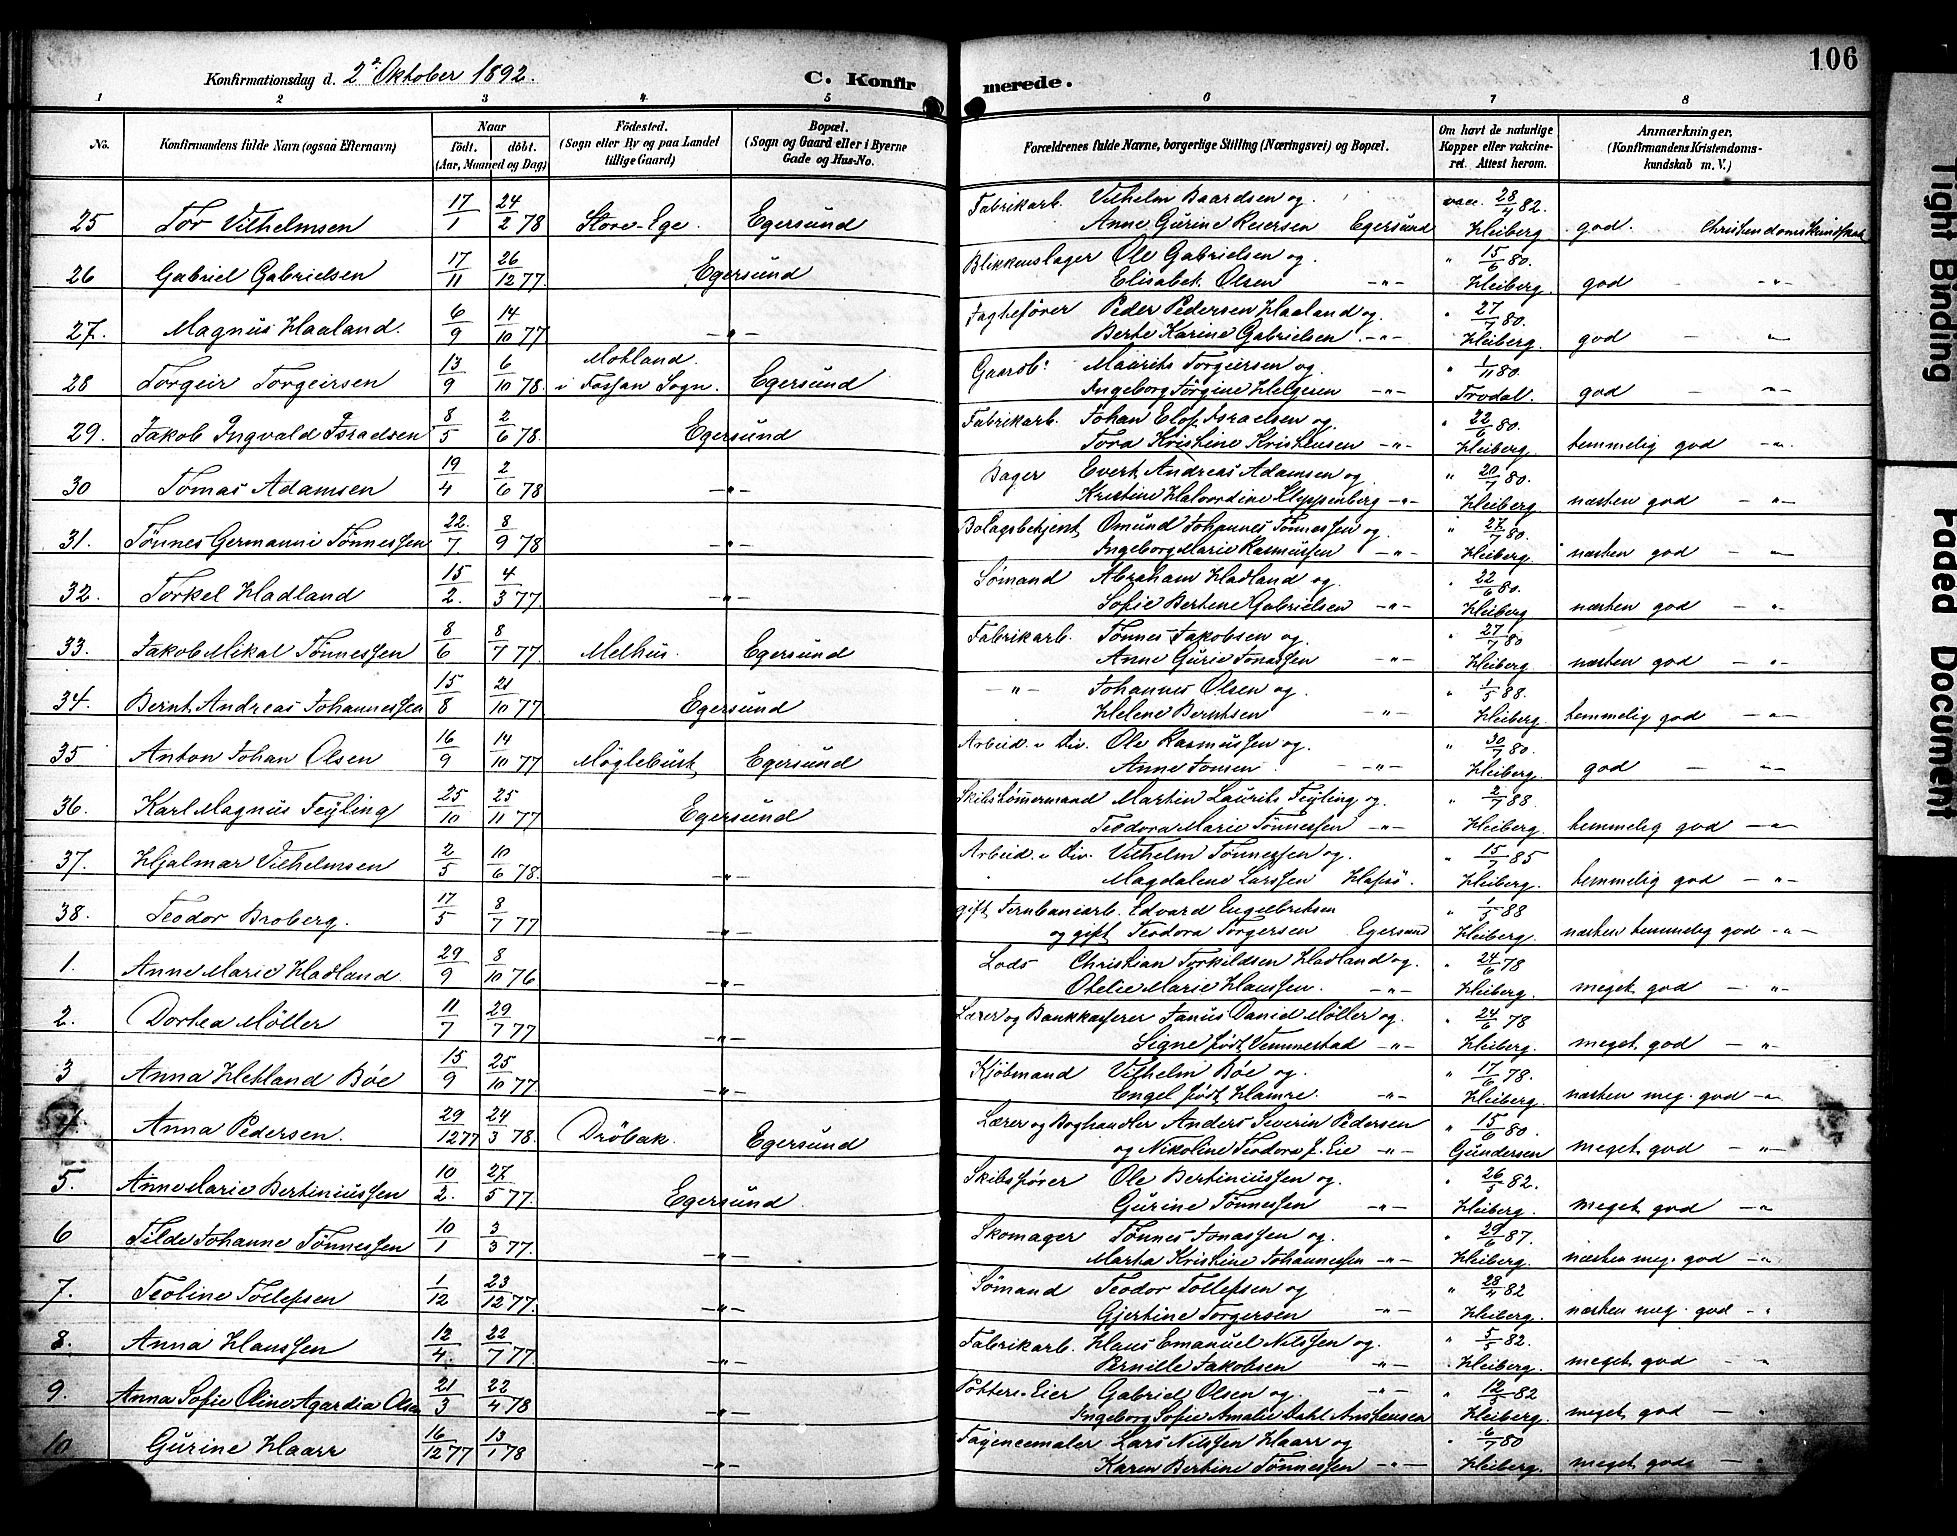 106
Konfirmationsdag d. 2den Oktober 1892. C. Konfirmerede.
1 2 3 4 5 6 7 8
No. Konfirmandens fulde Navn (ogsaa Efternavn) Naar födt. döbt. (Aar, Maaned og Dag) Födested. (Sogn eller By og paa Landet tillige Gaard) Bopæl. (Sogn og Gaard eller i Byerne Gade og Hus-No. Forældrenes fulde Navne, borgerlige Stilling (Næringsvei) og Bopæl. Om havt de naturlige Kopper eller vakcineret. Attest herom. Anmærkninger. (Konfirmandens Kristendomskundskab m. V.)
25 Tor Vilhelmsen 17/1 24/2 78 Store-Ege Egersund Fabrikarb. Vilhelm Baardsen og
Anne Gurine Reiersen Egersund vacc. 28/4 82. Heiberg god. Christendomskundskab
26 Gabriel Gabrielsen 17/11 26/12 77. Egersund Blikkenslager Ole Gabrielsen og
Elisabet Olsen -„- „ 15/6 80. Heiberg. god -„-
27. Magnus Haaland. 6/9 14/10 77 -„- Peder Pedersen Haaland og
Berte Karine Gabrielsen. -„- „ 27/7 80. Heiberg. god -„-
28 Torgeir Torgeirsen 13/9 6/10 78. Motland i Fossan Sogn. Egersund Maurits Torgeirsen og
Ingeborg Torgine Helgesen -„- „ 1/11 80. Trodal. god -„-
29. Jakob Ingvald Israelsen 8/5 2/6 78. Egersund Fabrikarb. Johan Elof Israelsen og
Tora Kristine Kristensen -„- „ 22/6 80. Heiberg temmelig god -„-
30 Tomas Adamsen 19/4 2/6 78 -„- Bager Evert Andreas Adamsen og
Kristine Halvordine Kleppenberg -„- „ 20/7 80. Heiberg. næsten god -„-
31. Tönnes Germanni Tönnessen 22/7 8/9 78 -„- Bolagsbetjent Omund Johannes Tönnessen og
Ingeborg Marie Rasmussen -„- „ 27/7 80. Heiberg. næsten god -„-
32. Torkel Hadland 15/2. 4/3 77. -„- Sømand Abraham Hadland og
Sofie Bertine Gabrielsen -„- „ 22/6 80. Heiberg næsten god -„-
33. Jakob Mikal Tönnessen 8/6 8/7 77. Melhus. Egersund Fabrikarb. Tönnes Jakobsen og
Anne Gurie Jonassen -„- „ 27/7 80 Heiberg. næsten god -„-
34. Bernt Andreas Johannessen 15/8 21/10 77 Egersund -„- Johannes Olsen og
Helene Berntsen -„- „ 1/5 88. Heiberg. temmelig god -„-
35 Anton Johan Olsen 16/9 14/10 77 Möglebust Egersund Arbeid. v Div. Ole Rasmussen og
Anne Jonsen -„- „ 30/7 80. Heiberg. god -„-
36. Karl Magnus Feyling 25/10 25/11 77 Egersund Skibstømmermand Martin Laurits Feyling og
Teodora Marie Tönnessen -„- „ 2/7 88. Heiberg. temmelig god -„-
37. Hjalmar Vilhelmsen 2/5 10/6 78. -„- Arbeid. v Div. Vilhelm Tönnessen og
Magdalene Larssen Hafsö. „ 15/7 85 Heiberg. temmelig god -„-
38. Teodor Broberg. 17/5 8/7 77 -„- gift Jernbanearb. Edvard Engelbretsen
og gift Teodora Torgersen Egersund „ 1/5 88 Heiberg. næsten temmelig god -„-
1. Anne Marie Hadland. 29/9 8/10 76 -„- Lods Christian Torkildsen Hadland og
Otelie Marie Hanssen. -„- „ 24/6 78 Heiberg. meget god -„-
2. Dortea Möller 11/7 29/7 77 -„- Lærer og Bankkasserer Janus Daniel Möller og
Signe født Vemmestad -„- „ 24/6 78 Heiberg. meget god -„-
3 Anna Hetland Böe 15/9 25/10 77. -„- Kjöbmand Vilhelm Böe og
Engel født Hamre. -„- „ 17/6 78. Heiberg. næsten meg. god -„-
4. Anna Pedersen. 29/12 77 24/3 78. Dröbak. Egersund Lærer og Boghandler Anders Severin Pedersen
og Nikoline Teodora f. Eie -„- „ 15/6 80. Gundersen meget god -„-
5. Anne Marie Bertiniussen 10/2. 27/5 77. Egersund Skibsfører Ole Bertiniussen og
Gurine Tönnessen -„- „ 26/5 82. Heiberg. meget god -„-
6 Tilde Johanne Tönnessen 10/1 3/3 77. -„- Skomager Tönnes Jonassen og
Marta Kristine Johannessen -„- „ 29/6 87. Heiberg. næsten meg. god -„-
7. Teoline Tollefsen 1/12 23/12 77. -„- Sømand Teodor Tollefsen og
Gjertine Torgersen -„- „ 28/4 82 Heiberg. næsten meg. god -„-
8. Anna Hanssen 12/4. 22/7 77. -„- Fabrikarb. Hans Emanuel Nilssen og
Pernille Jakobsen -„- „ 5/5 82. Heiberg. meget god -„-
9. Anna Sofie Oline Agardia Olsen 21/3 22/4 78 -„- Potteri-Eier Gabriel Olsen og -„-
Ingeborg Sofie Amalie Dahl Anstensen „ 12/5 82 Heiberg. meget god -„-
10 Gurine Haarr 16/12 77 13/1 78 -„- Fayencemaler Lars Nilssen Haarr og
Karen Bertine Tönnessen -„- „ 6/7 80 Heiberg. meget god -„-
Tight Binding
Faded Document